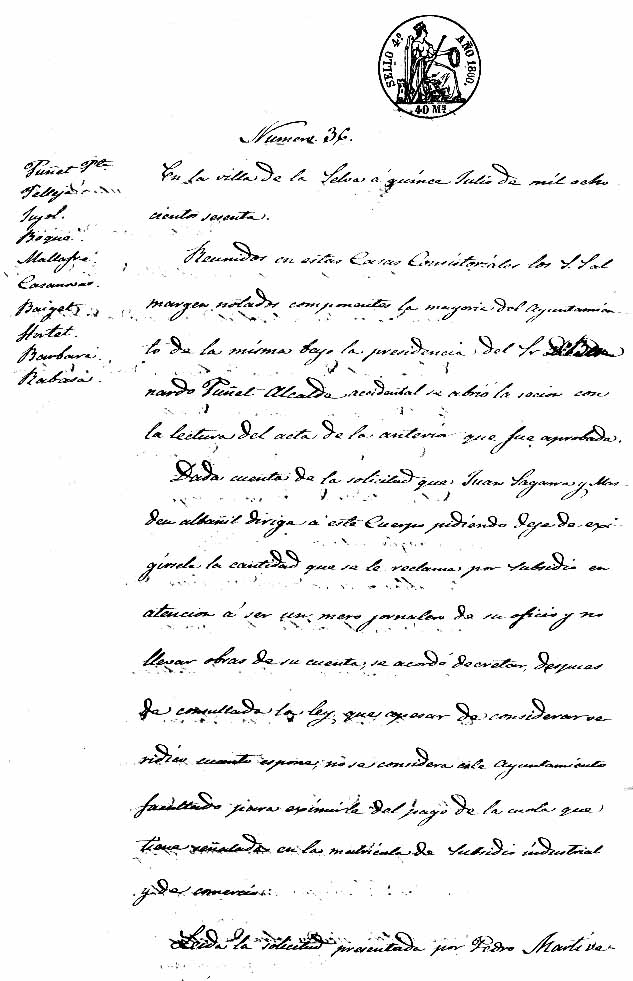 SELLO 4º AÑO 1860.
40 Ms
Numero 36.
Puñet Pte
Jujol.
Boqué
Mallafré
Casanovas
Baiget
Hortet
Barbará
Rabasa
En la villa de la Selva á quince Julio de mil ocho
cientos sesenta.
Reunidos en estas Casas Consistoriales los S.S. al
margen notados componentes la mayoria del Ayuntamien
to de la misma bajo la presidencia del Sr Dn Ber
nardo Puñet Alcalde accidental se abrió la secion con
la lectura del acta de la anterior que fue aprobada.
Dada cuenta de la solicitud que Juan Sagarra y Mas
deu albañil dirige á este Cuerpo pidiendo deje de exi
girsele la cantidad que se le reclama por subsidio en
atencion á ser un mero jornalero de su oficio y no
llevar obras de su cuenta; se acordó decretar, despues
de consultada la ley, que apesar de considerar ve
ridico cuanto espone, no se considera este Ayuntamiento
facultado para eximirle del pago de la cuota que
tiene señalada en la matricula de subsidio industrial
y de comercio.
Leida la solicitud presentada por Pedro Martí ve-